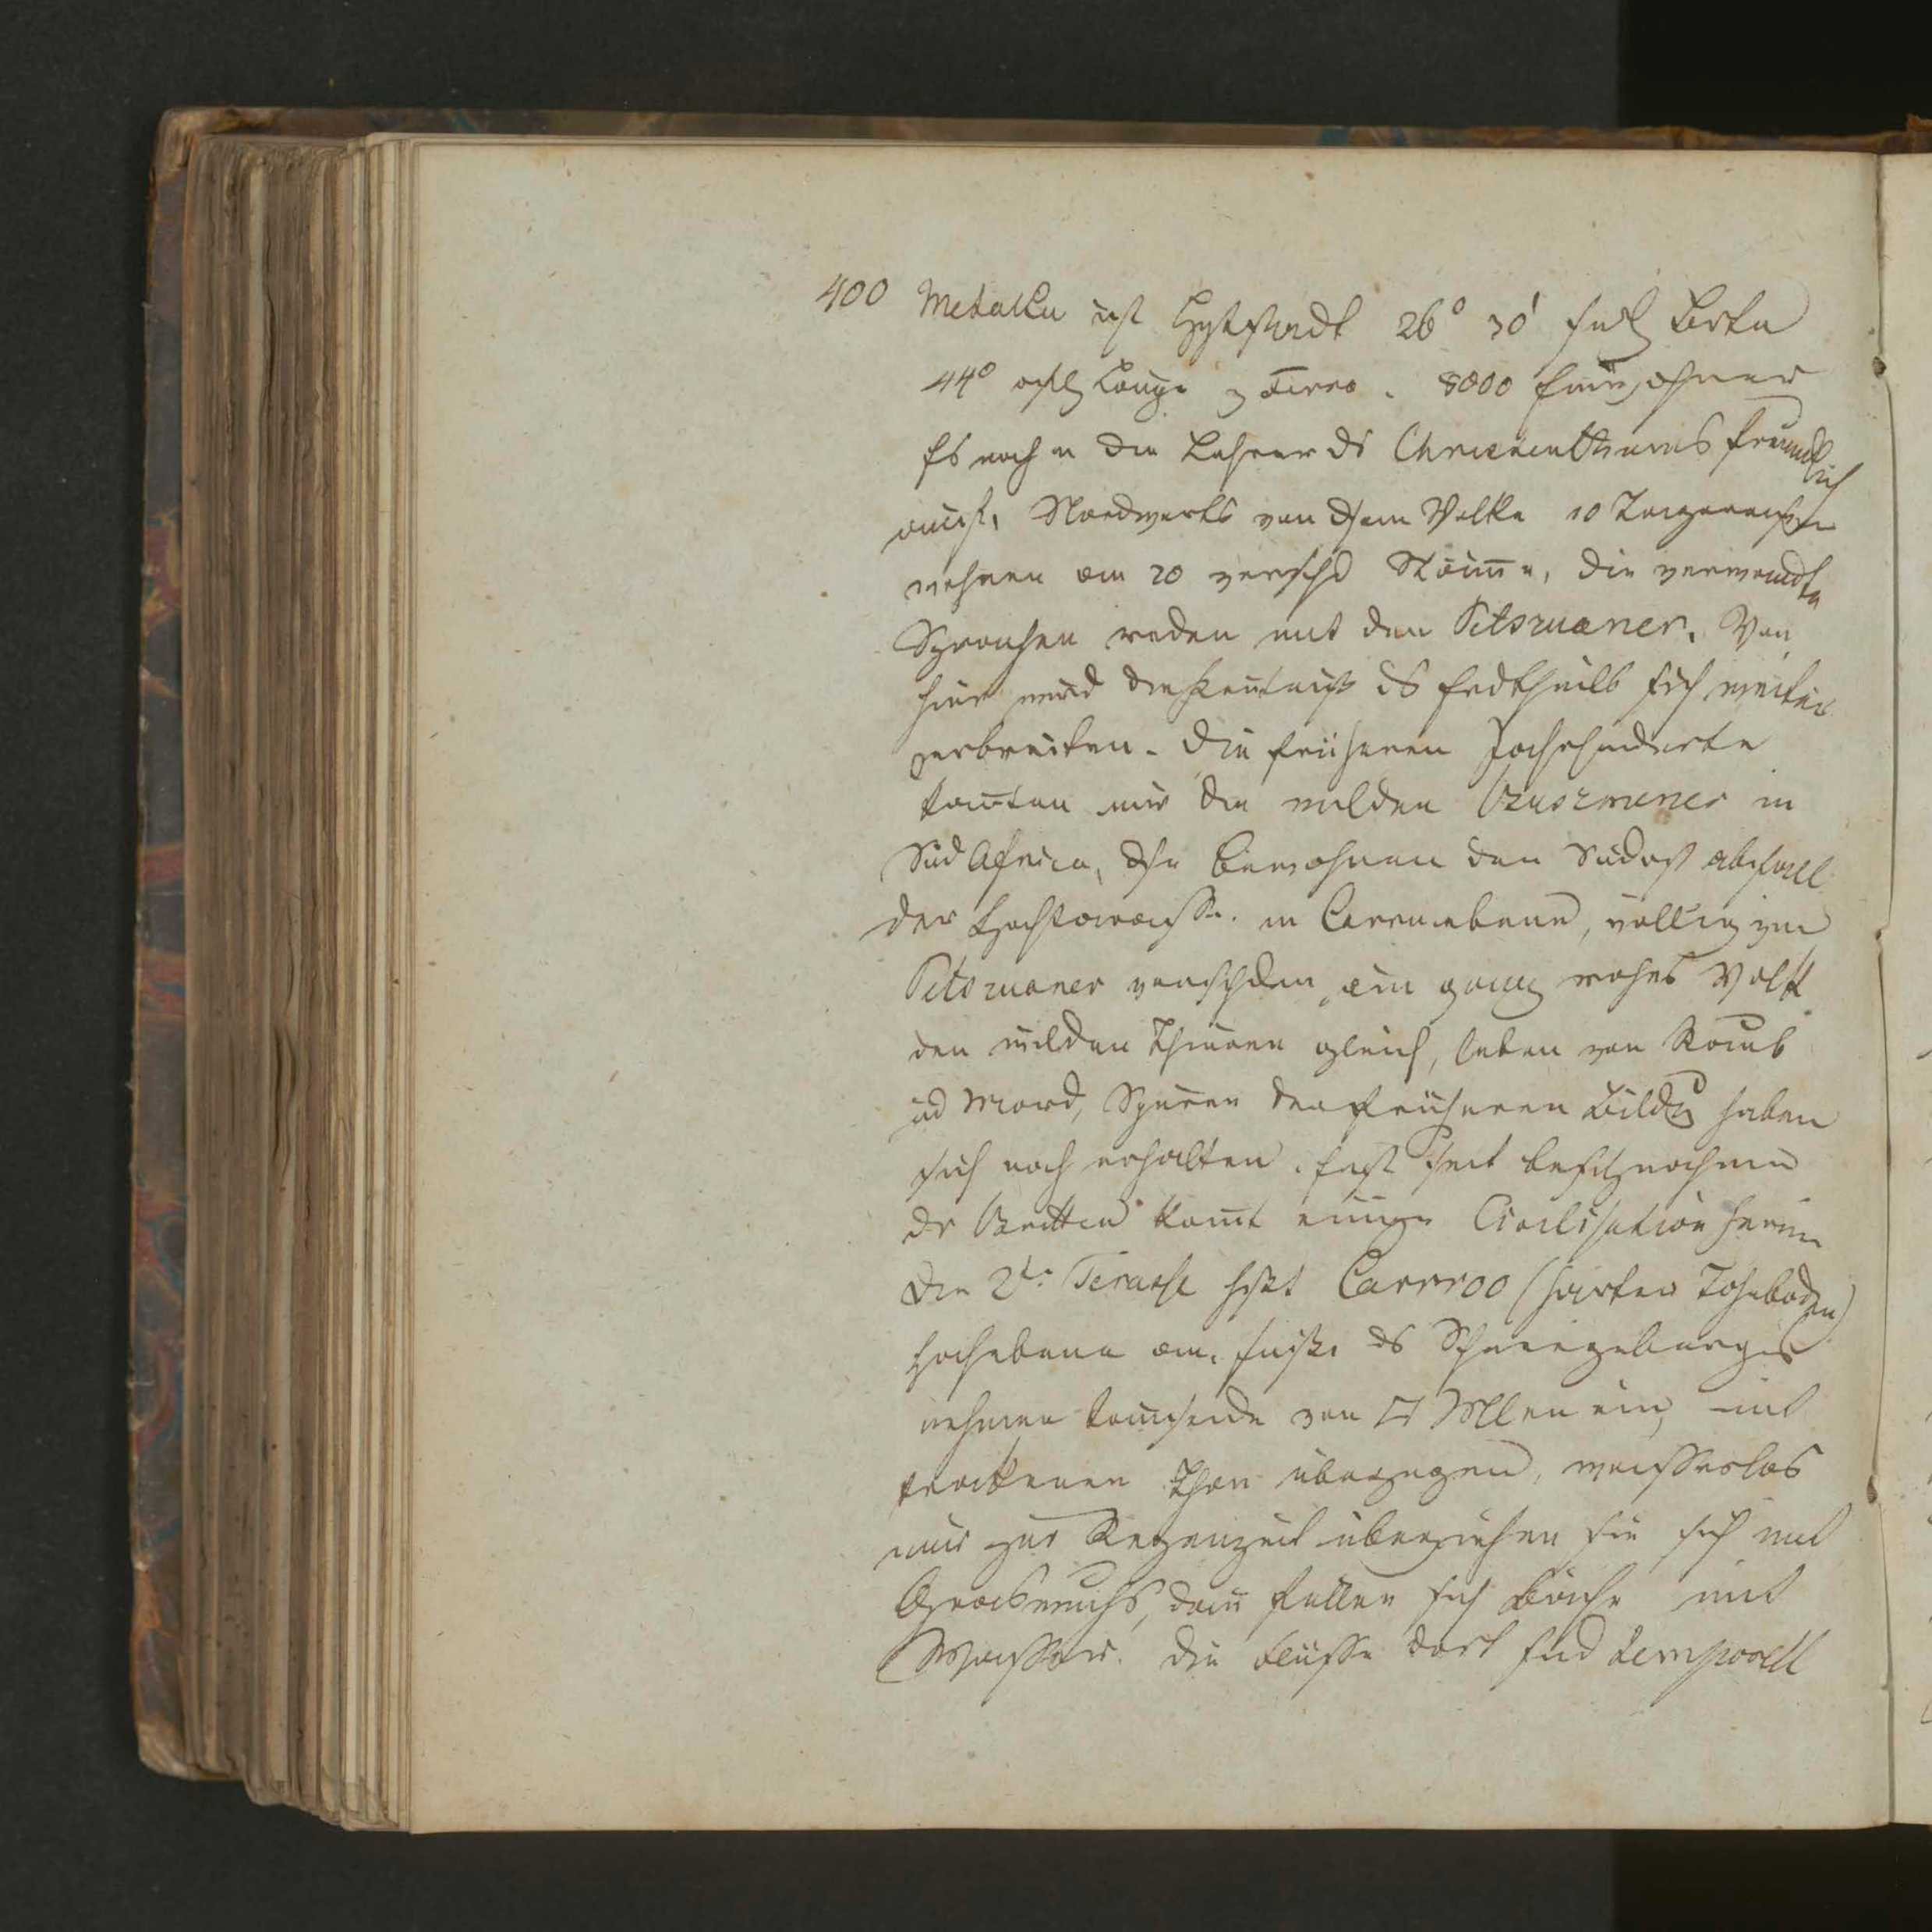 400 Metakka ist Hptstadt 26° 30' südl Breite
44° östl Länge v Ferro. 8000 Einwohner
Es nahm die Lehrer ds Christenthums freundlich
auf. Nordwerts von dsem Volke 10 Tagereisen
wohnen an 20 verschd Stäme, die verwandte
Sprachen reden mit den Betszuaner. Von
hier wird die Kentniß ds Erdtheils sich weiter
verbreiten. Die früheren Jahrhunderte
kanten nur die wilden Buszmener in
Süd Africa, dse bewohnen den Südost abfall
der Hochterrasse in Carruebene, völlig von
Betszuaner verschden, ein ganz rohes Volk
den wilden Thieren gleich, leben von Raub
ud Mord, Spuren der früheren Bildg haben
sich noch erhalten. Erst seit besitznahme
dr Britten komt einige Civilisation herein
Die 2te Terasse hßt Carrroo (harter Thonboden)
Hochebene am fuße ds Schneegebirges
nehmen tausende von □ Mlen ein, mit
trockenen Thon überzogen, wasserlos
nur zur Regenzeit überziehen sie sich mit
Graswuchs, dan füllen sich Bäche mit
Wasser. Die Flüsse dort sind temporell